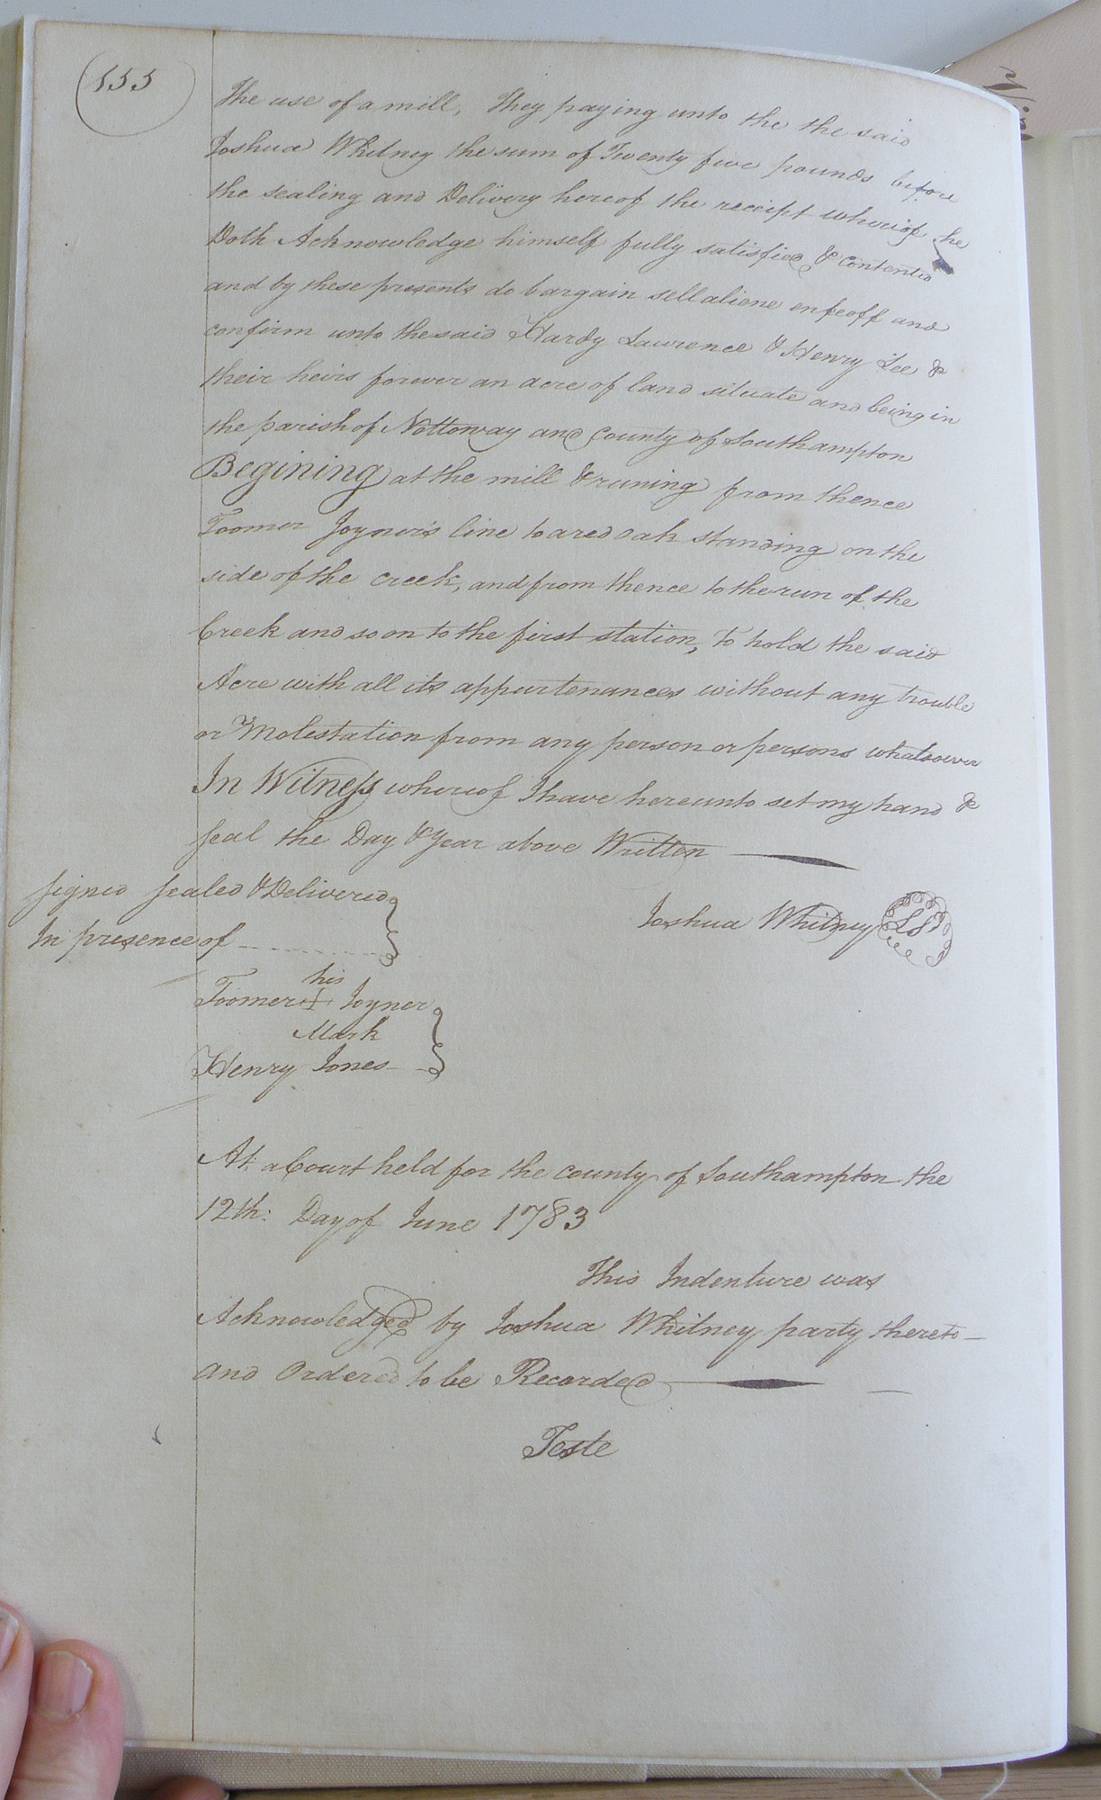 155
The use of a mill, They paying unto the the said
Joshua Whitney the sum of Twenty five pounds before
the sealing and Delivery hereof the receipt whereof he
Doth Acknowledge himself fully satisfied & Contented
and by these presents do bargain sell aliene enfeoff and
confirm unto the said Hardy Lawrence & Henry Lee &
their heirs forever an acre of land situate and being in
the parish of Nottoway and County of Southampton
Begining at the mill & runing from thence
Toomer Joyner's line to a red oak standing on the
side of the creek, and from thence to the run of the
Creek and so on to the first station, To hold the said
Acre with all its appurtenances without any trouble
or Molestation from any person or persons whatsoever
In Witness whereof I have hereunto set my hand &
seal the Day & Year above Written
Signed Sealed & Delivered
In presence of
Joshua Whitney LS
his
Toomer + Joyner
Mark
Henry Jones
At a Court held for the county of Southampton the
12th: Day of June 1783
This Indenture was
Acknowledged by Joshua Whitney party thereto
and Ordered to be Recorded
Teste